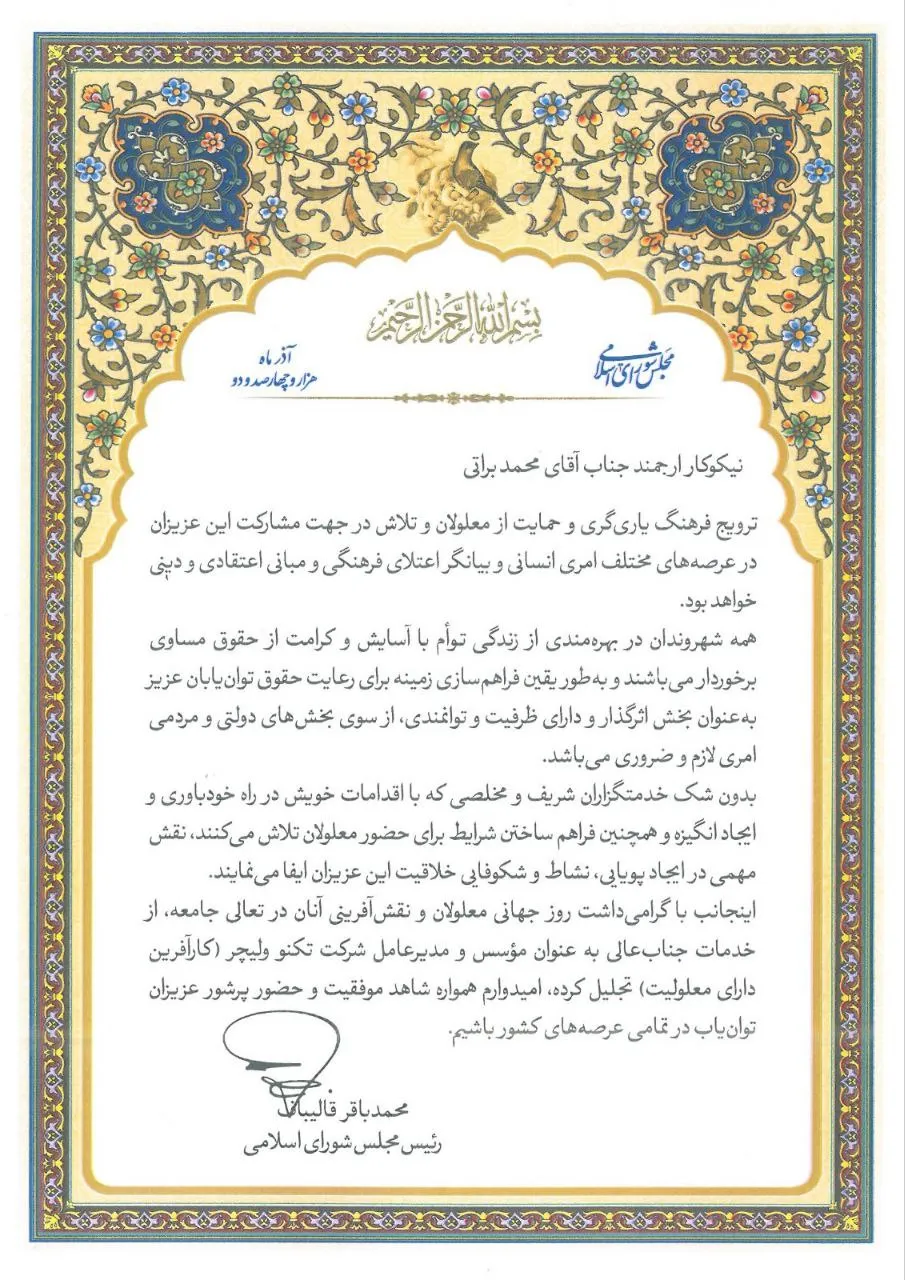 بسم الله الرحمن الرحیم
مجلس شورای اسلامی
آذر ماه
هزار و چهارصد و دو
نیکوکار ارجمند جناب آقای محمد براتی
ترویج فرهنگ یاری‌گری و حمایت از معلولان و تلاش در جهت مشارکت این عزیزان
در عرصه‌های مختلف امری انسانی و بیانگر اعتلای فرهنگی و مبانی اعتقادی و دینی
خواهد بود.
همه شهروندان در بهره‌مندی از زندگی توأم با آسایش و کرامت از حقوق مساوی
برخوردار می‌باشند و به‌طور یقین فراهم‌سازی زمینه برای رعایت حقوق توان‌یابان عزیز
به‌عنوان بخش اثرگذار و دارای ظرفیت و توانمندی، از سوی بخش‌های دولتی و مردمی
امری لازم و ضروری می‌باشد.
بدون شک خدمتگزاران شریف و مخلصی که با اقدامات خویش در راه خودباوری و
ایجاد انگیزه و همچنین فراهم ساختن شرایط برای حضور معلولان تلاش می‌کنند، نقش
مهمی در ایجاد پویایی، نشاط و شکوفایی خلاقیت این عزیزان ایفا می‌نمایند.
اینجانب با گرامی‌داشت روز جهانی معلولان و نقش‌آفرینی آنان در تعالی جامعه، از
خدمات جناب‌عالی به عنوان مؤسس و مدیرعامل شرکت تکنو ولیچر (کارآفرین
دارای معلولیت) تجلیل کرده، امیدوارم همواره شاهد موفقیت و حضور پرشور عزیزان
توان‌یاب در تمامی عرصه‌های کشور باشیم.
محمدباقر قالیباف
رئیس مجلس شورای اسلامی